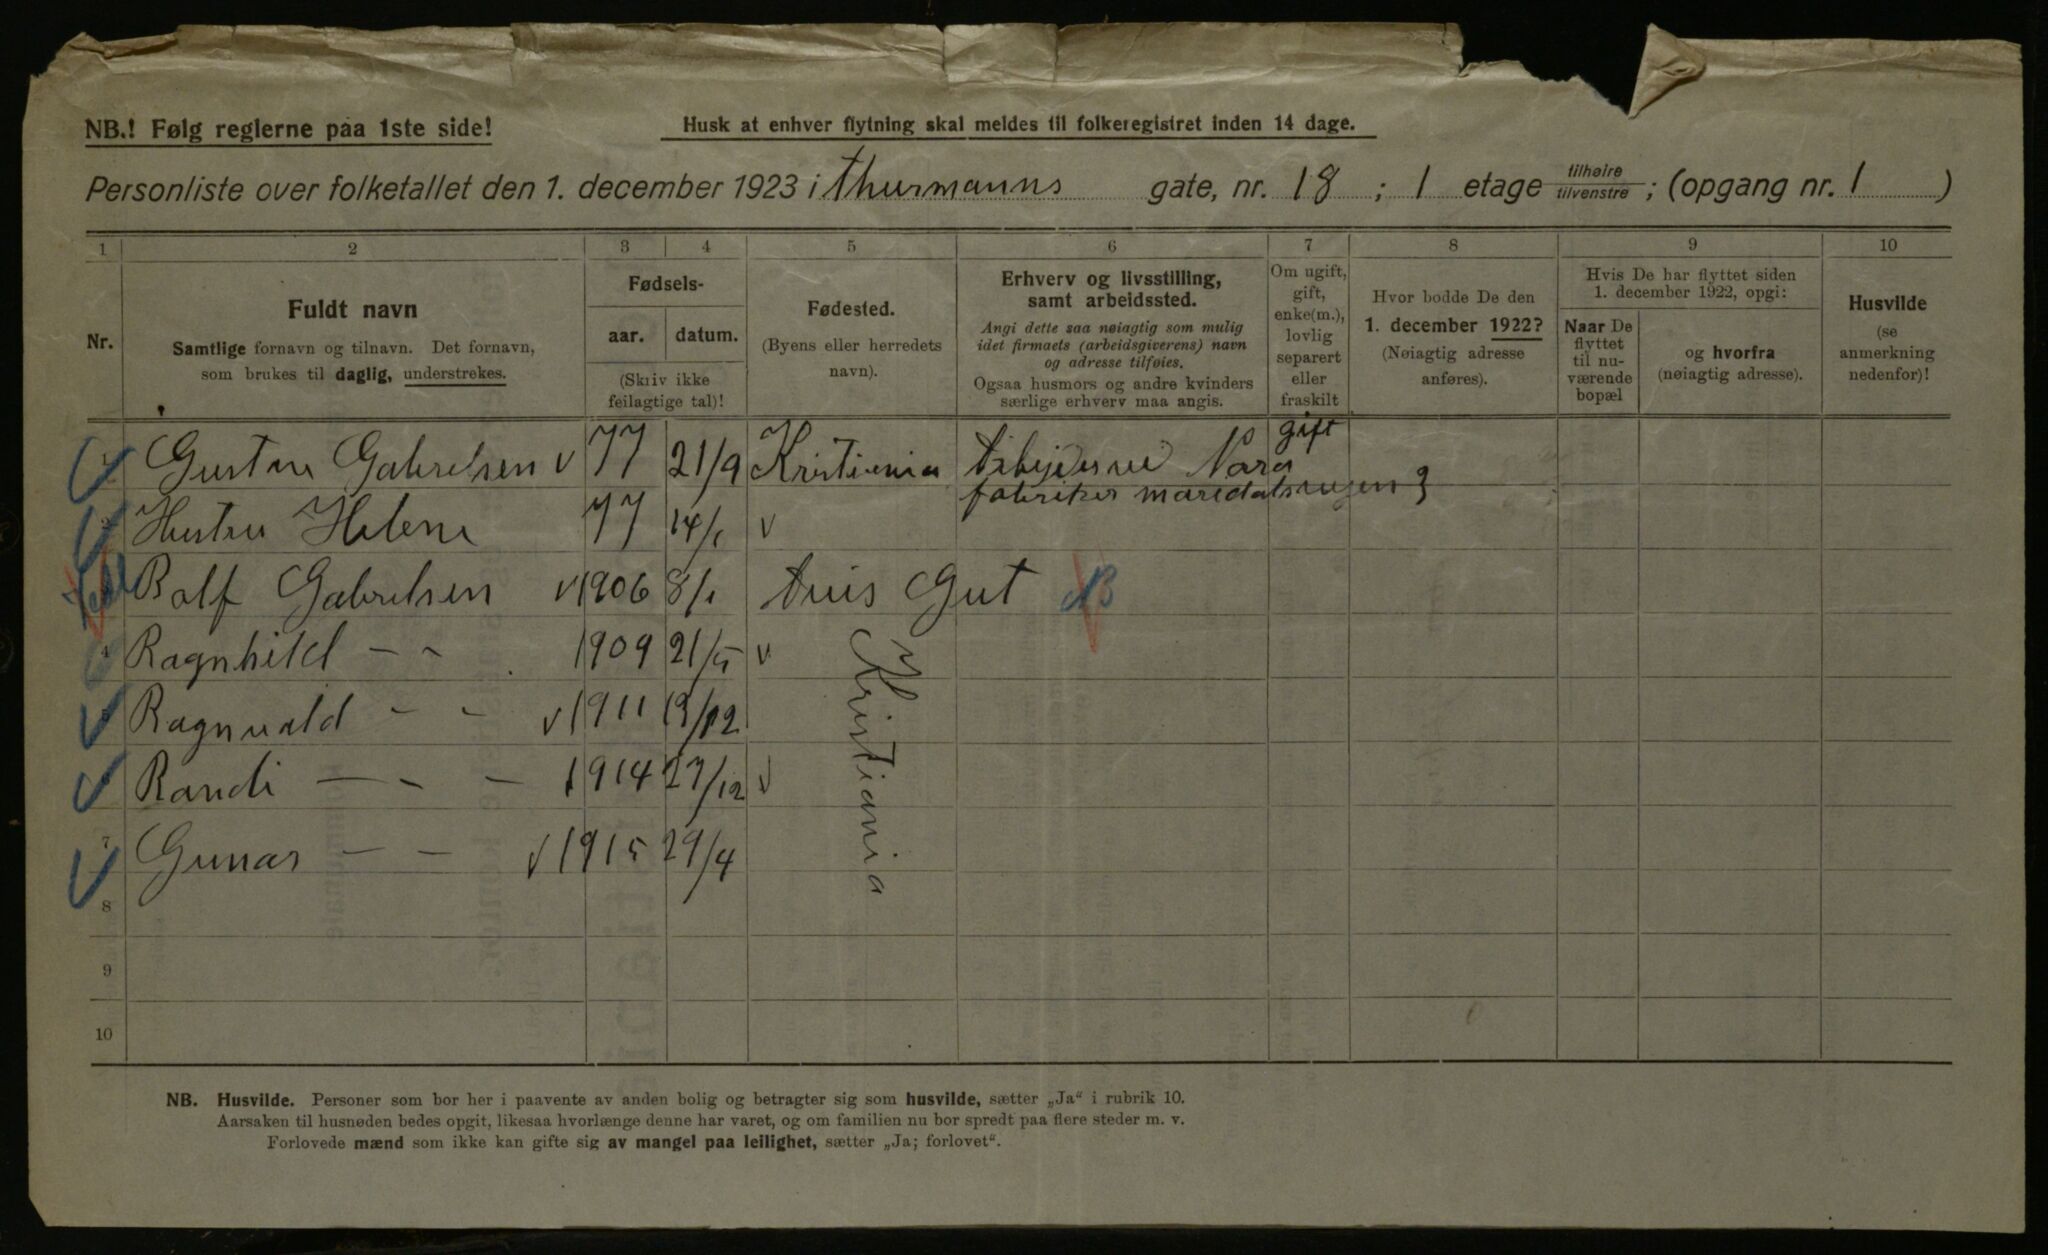 NB.! Følg reglerne paa 1ste side!
Husk at enhver flytning skal meldes til folkeregistret inden 14 dage.
Personliste over folketallet den 1. december 1923 i Thurmanns gate, nr. 18 ; 1 etage tilhøire tilvenstre ; (opgang nr. 1 )
1 2 3 4 5 6 7 8 9 10
Nr.
Fuldt navn
Samtlige fornavn og tilnavn. Det fornavn,
som brukes til daglig, understrekes.
Fødsels-
aar. datum.
(Skriv ikke
feilagtige tal)!
Fødested.
(Byens eller herredets
navn).
Erhverv og livsstilling,
samt arbeidssted.
Angi dette saa nøiagtig som mulig
idet firmaets (arbeidsgiverens) navn
og adresse tilføies.
Ogsaa husmors og andre kvinders
særlige erhverv maa angis.
Om ugift,
gift,
enke(m.),
lovlig
separert
eller
fraskilt
Hvor bodde De den
1. december 1922?
(Nøiagtig adresse
anføres).
Hvis De har flyttet siden
1. december 1922, opgi:
Naar De
flyttet
til nu-
værende
bopæl
og hvorfra
(nøiagtig adresse).
Husvilde
(se
anmerkning
nedenfor)!
Gustav Gabrielsen v 77 21/9 Kristiania Nora gift
fabriker maridalsveien 3
Hustru Helene 77 14/1 v
Rolf Gabrielsen v 1906 8/1 Gut
4 Ragnhild - - 1909 21/5 v
5 Ragnvald - - v 1911 13/12
6 Randi - - - 1914 27/12 v
7 Gunar - - v 1915 29/4
Kristiania
8
9
10
NB. Husvilde. Personer som bor her i paavente av anden bolig og betragter sig som husvilde, sætter „Ja“ i rubrik 10.
Aarsaken til husnøden bedes opgit, likesaa hvorlænge denne har varet, og om familien nu bor spredt paa flere steder m. v.
Forlovede mænd som ikke kan gifte sig av mangel paa leilighet, sætter „Ja; forlovet“.